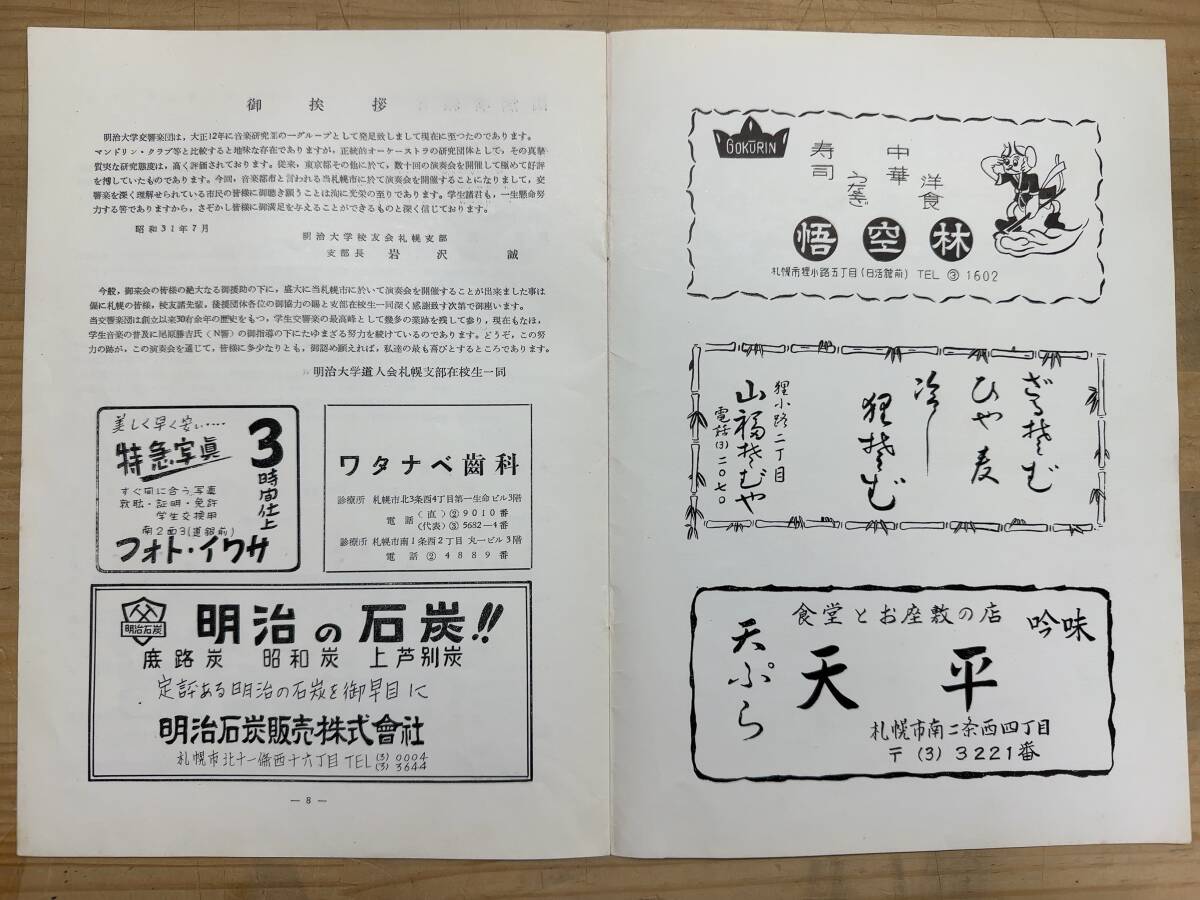 御挨拶
明治大学交響楽団は，大正12年に音楽研究部の一グループとして発足致しまして現在に至つたのであります。
マンドリン・クラブ等と比較すると地味な存在でありますが，正統的オーケーストラの研究団体として，その真摯
質実な研究態度は，高く評価されております。従来，東京都その他に於て，数十回の演奏会を開催して極めて好評
を博していたものであります。今回，音楽都市と言われる当札幌市に於て演奏会を開催することになりまして，交
響楽を深く理解せられている市民の皆様に御聴き願うことは洵に光栄の至りであります。学生諸君も，一生懸命努
力する筈でありますから，さぞかし皆様に御満足を与えることができるものと深く信じております。
昭和31年7月
明治大学校友会札幌支部
支部長 岩沢 誠
今般，御来会の皆様の絶大なる御援助の下に，盛大に当札幌市に於いて演奏会を開催することが出来ました事は
偏に札幌の皆様，校友諸先輩，後援団体各位の御協力の賜と支部在校生一同深く感謝致す次第で御座います。
当交響楽団は創立以来30有余年の歴史をもつ，学生交響楽の最高峰として幾多の業跡を残して参り，現在もなほ，
学生音楽の普及に尾原勝吉氏（N響）の御指導の下にたゆまざる努力を続けているのであります。どうぞ，この努
力の跡が，この演奏会を通じて，皆様に多少なりとも，御認め願えれば，私達の最も喜びとするところであります。
明治大学道人会札幌支部在校生一同
美しく早く安い‥‥
特急写真
3時間仕上
すぐ間に合う写真
就職・証明・免許
学生交換用
南2西3(道銀前)
フォト・イワサ
ワタナベ歯科
診療所 札幌市北3条西4丁目第一生命ビル3階
電話（直）②9010番
（代表）③5682―4番
診療所 札幌市南1条西2丁目 丸一ビル3階
電話 ②4889番
明治石炭
明治の石炭!!
庶路炭 昭和炭 上芦別炭
定評ある明治の石炭を御早目に
明治石炭販売株式會社
札幌市北十一條西十六丁目 TEL (3) 0004
(3) 3644
― 8 ―
GOKURIN
寿司
うなぎ
中華
洋食
悟空林
札幌市狸小路五丁目(日活館前) TEL ③1602
ざるそば
ひや麦
冷し
狸そば
狸小路二丁目
山福そばや
電話(3)二〇七〇
食堂とお座敷の店
吟味
天ぷら
天平
札幌市南二条西四丁目
〒(3)3221番